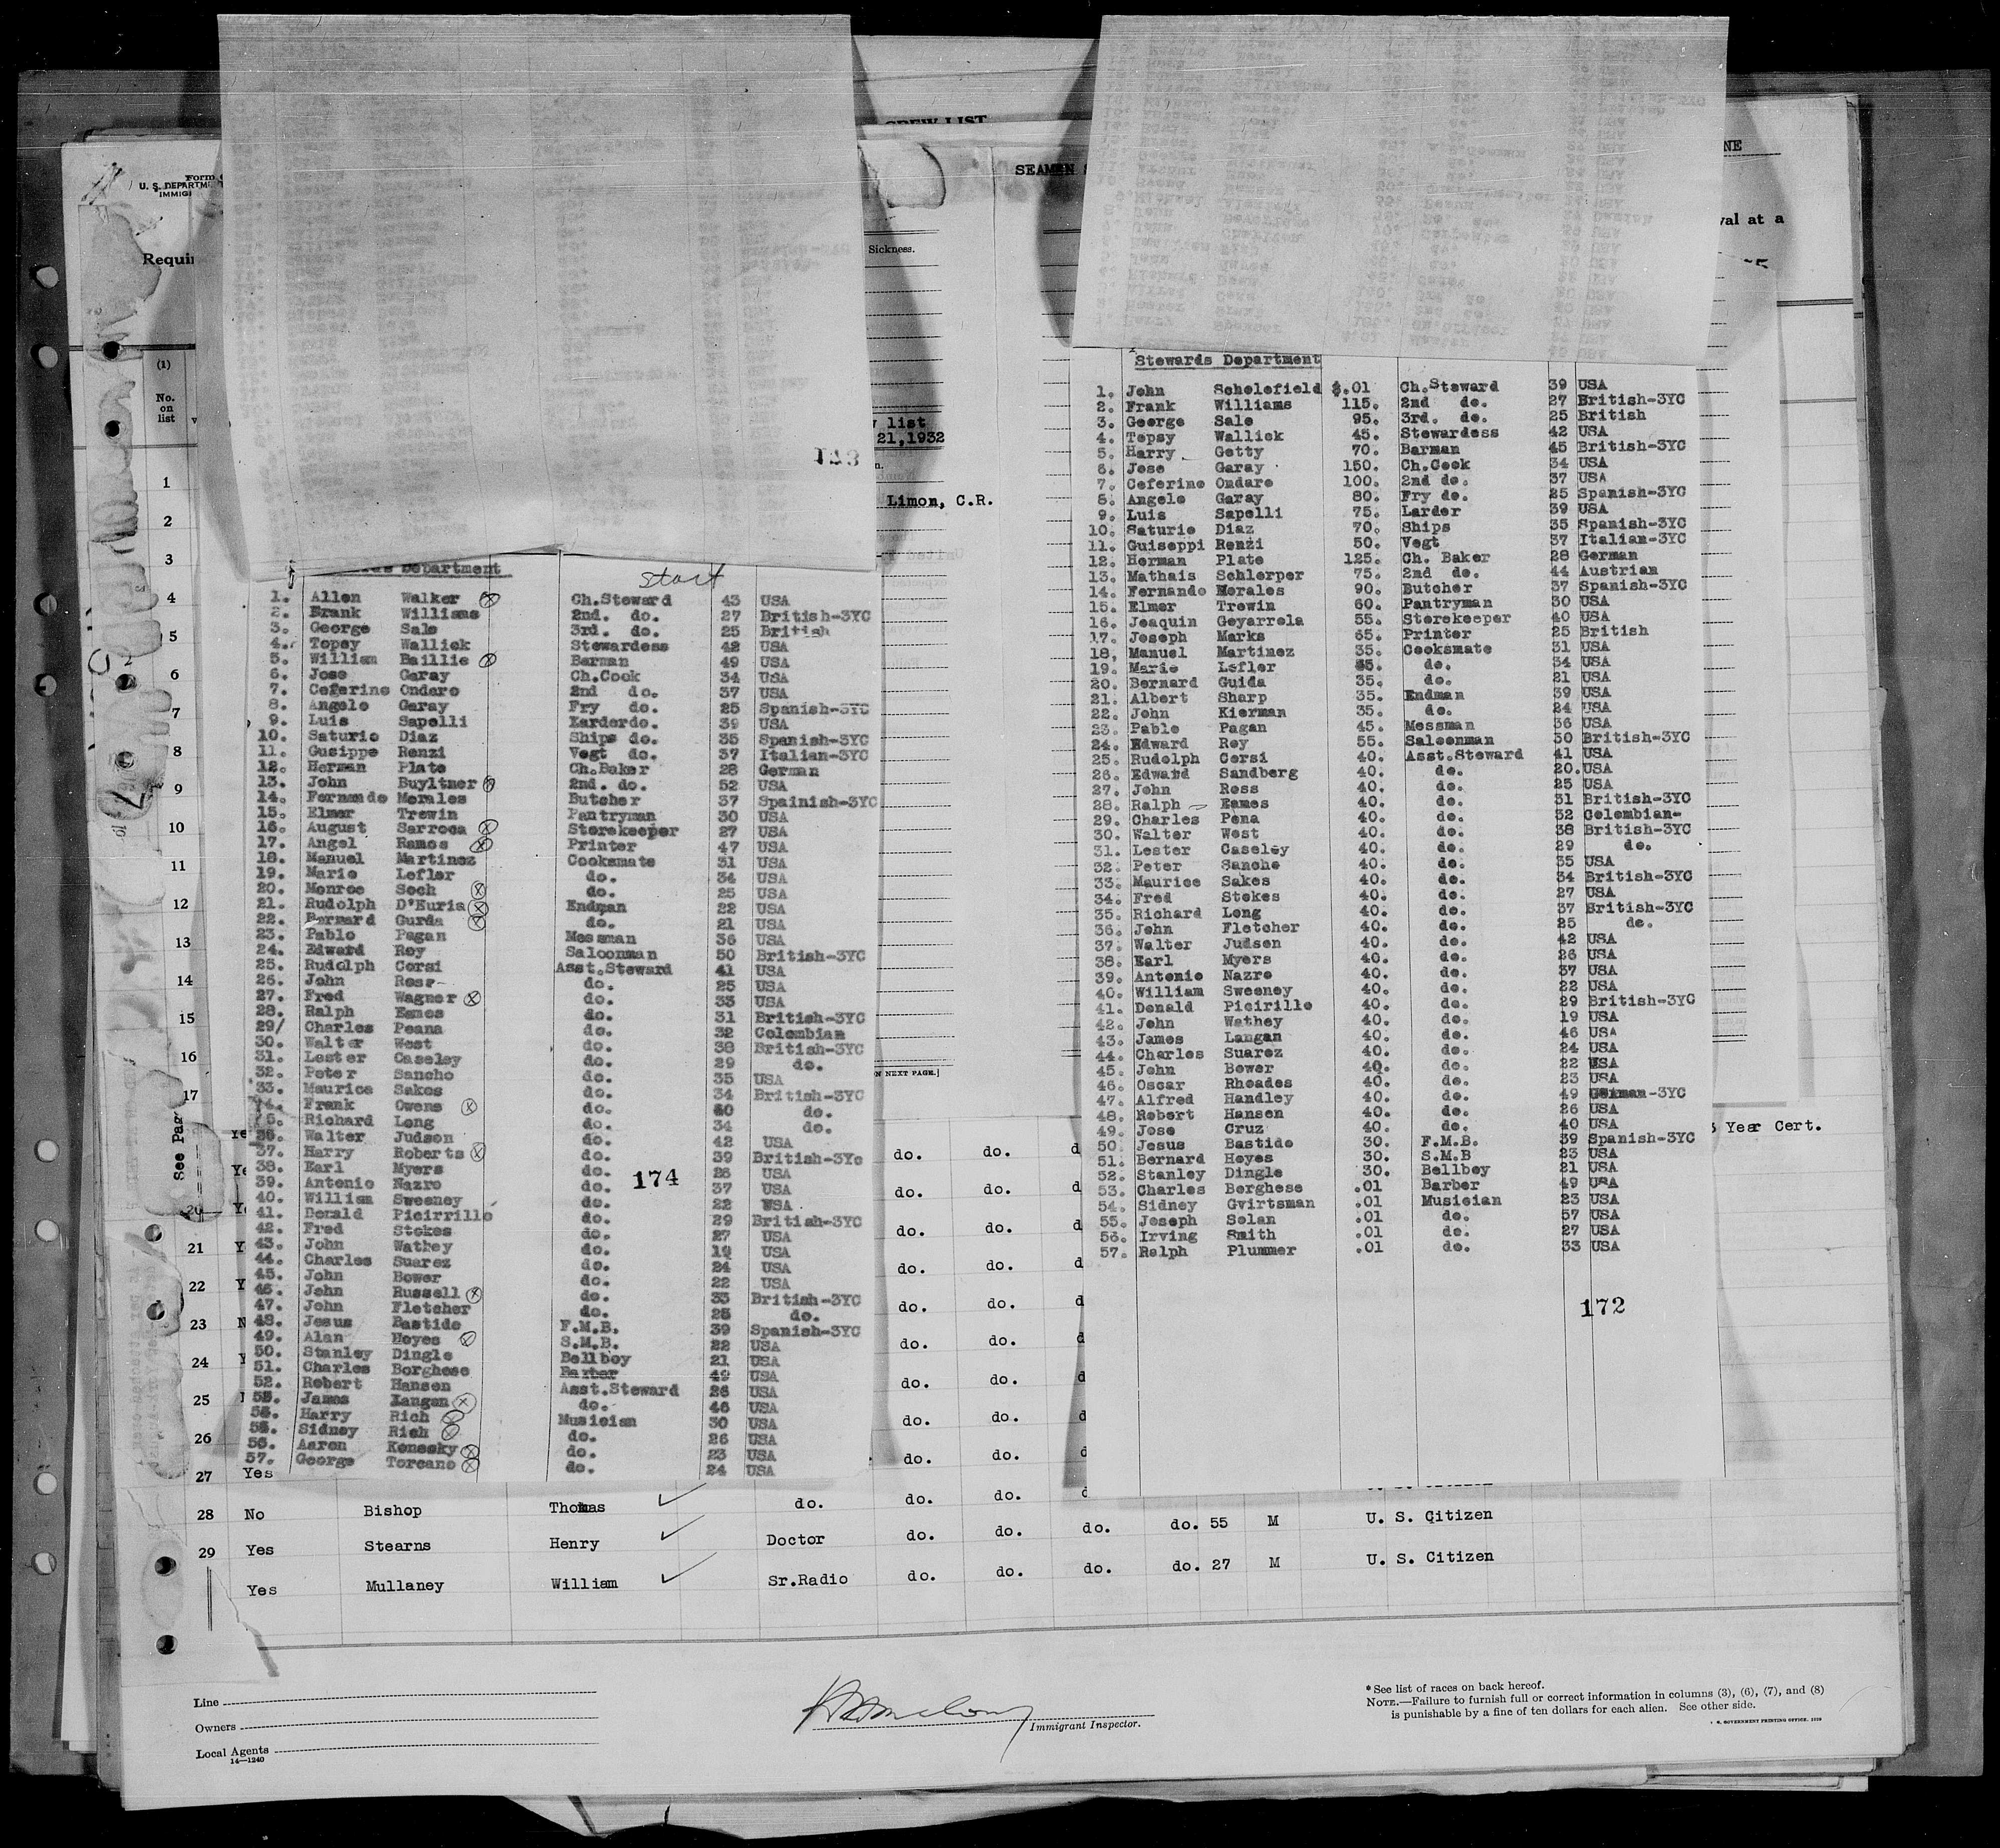 CREW LIST
SEAMEN
NE
Form
U. S. DEPARTM
IMMIG
val at a
Requi
Sickness.
(1)
No.
on
list
list
21,1932
Limon, C.R.
1
2
3
4
5
6
7
8
9
10
11
12
13
14
15
16
17
See Pag
Department
start
1. Allen Walker Ch.Steward 43 USA
2. Frank Williams 2nd. do. 27 British-3YC
3. George Sale 3rd. do. 25 British
4. Topsy Wallick Stewardess 42 USA
5. William Baillie Barman 49 USA
6. Jose Garay Ch.Cook 34 USA
7. Ceferino Ondaro 2nd do. 37 USA
8. Angelo Garay Fry do. 25 Spanish-3YC
9. Luis Sapelli Larderdo. 39 USA
10. Saturio Diaz Ships do. 35 Spanish-3YC
11. Gusippe Renzi Vegt do. 37 Italian-3YC
12. Herman Plate Ch.Baker 28 German
13. John Buyltner 2nd. do. 52 USA
14. Fernando Morales Butcher 37 Spainish-3YC
15. Elmer Trewin Pantryman 30 USA
16. August Sarroca Storekeeper 27 USA
17. Angel Ramos Printer 47 USA
18. Manuel Martinez Cooksmate 31 USA
19. Mario Lefler do. 34 USA
20. Monroe Soch do. 25 USA
21. Rudolph D'Euria Endman 22 USA
22. Bernard Gurda do. 21 USA
23. Pablo Pagan Messman 36 USA
24. Edward Roy Saloonman 50 British-3YC
25. Rudolph Corsi Asst.Steward 41 USA
26. John Ross do. 25 USA
27. Fred Wagner do. 33 USA
28. Ralph Eames do. 31 British-3YC
29/ Charles Peana do. 32 Colombian
30. Walter West do. 38 British-3YC
31. Lester Caseley do. 29 do.
32. Peter Sancho do. 35 USA
33. Maurice Sakes do. 34 British-3YC
34. Frank Owens do. 50 do.
35. Richard Long do. 34 do.
36. Walter Judson do. 42 USA
37. Harry Roberts do. 39 British-3Yc
38. Earl Myers do. 26 USA
39. Antonio Nazro do. 37 USA
40. William Sweeney do. 22 USA
41. Donald Picirrillo do. 29 British-3YC
42. Fred Stokes do. 27 USA
43. John Wathey do. 19 USA
44. Charles Suarez do. 24 USA
45. John Bower do. 22 USA
46. John Russell do. 33 British-3YC
47. John Fletcher do. 25 do.
48. Jesus Bastido F.M.B. 39 Spanish-3YC
49. Alan Hoyes S.M.B. 22 USA
50. Stanley Dingle Bellboy 21 USA
51. Charles Borghese Barber 49 USA
52. Robert Hansen Asst.Steward 26 USA
53. James Langan do. 46 USA
54. Harry Rich Musician 30 USA
55. Sidney Rich do. 26 USA
56. Aaron Konesky do. 23 USA
57. George Torcano do. 24 USA
174
Stewards Department
1. John Scholefield $.01 Ch.Steward 39 USA
2. Frank Williams 115. 2nd do. 27 British-3YC
3. George Sale 95. 3rd. do. 25 British
4. Topsy Wallick 45. Stewardess 42 USA
5. Harry Getty 70. Barman 45 British-3YC
6. Jose Garay 150. Ch.Cook 34 USA
7. Ceferino Ondaro 100. 2nd do. 37 USA
8. Angelo Garay 80. Fry do. 25 Spanish-3YC
9. Luis Sapelli 75. Larder 39 USA
10. Saturio Diaz 70. Ships 35 Spanish-3YC
11. Guiseppi Renzi 50. Vegt 37 Italian-3YC
12. Herman Plate 125. Ch. Baker 28 German
13. Mathais Schlerper 75. 2nd do. 44 Austrian
14. Fernando Morales 90. Butcher 37 Spanish-3YC
15. Elmer Trewin 60. Pantryman 30 USA
16. Joaquin Goyarrola 55. Storekeeper 40 USA
17. Joseph Marks 65. Printer 25 British
18, Manuel Martinez 35. Cooksmate 31 USA
19. Mario Lefler 35. do. 34 USA
20. Bernard Guida 35. do. 21 USA
21. Albert Sharp 35. Endman 39 USA
22. John Kierman 35. do. 24 USA
23. Pablo Pagan 45. Messman 36 USA
24. Edward Roy 55. Saloonman 50 British-3YC
25. Rudolph Corsi 40. Asst.Steward 41 USA
26. Edward Sandberg 40. do. 20. USA
27. John Ross 40. do. 25 USA
28. Ralph Eames 40. do. 31 British-3YC
29. Charles Pena 40. do. 32 Colombian-
30. Walter West 40. do. 38 British-3YC
31. Lester Caseley 40. do. 29 do.
32. Peter Sancho 40. do. 35 USA
33. Maurice Sakes 40. do. 34 British-3YC
34. Fred Stokes 40. do. 27 USA
35. Richard Long 40. do. 37 British-3YC
36. John Fletcher 40. do. 25 do.
37. Walter Judson 40. do. 42 USA
38. Earl Myers 40. do. 26 USA
39. Antonio Nazro 40. do. 37 USA
40. William Sweeney 40. do. 22 USA
41. Donald Picirillo 40. do. 29 British-3YC
42. John Wathey 40. do. 19 USA
43. James Langan 40. do. 46 USA
44. Charles Suarez 40. do. 24 USA
45. John Bower 40. do. 22 USA
46. Oscar Rhoades 40. do. 23 USA
47. Alfred Handley 40. do. 49 German-3YC
48. Robert Hansen 40. do. 26 USA
49. Jose Cruz 40. do. 40 USA
50. Jesus Bastido 30. F.M.B. 39 Spanish-3YC
51. Bernard Hoyes 30. S.M.B 23 USA
52. Stanley Dingle 30. Bellboy 21 USA
53. Charles Borghese .01 Barber 49 USA
54. Sidney Gvirtsman .01 Musician 23 USA
55. Joseph Solan .01 do. 57 USA
56. Irving Smith .01 do. 27 USA
57. Ralph Plummer .01 do. 33 USA
172
ON NEXT PAGE.]
Year Cert.
do. do.
20 do. do.
21 do. do.
22 do. do.
23 do. do.
24 do. do.
25 do. do.
26 do. do.
27 Yes do. do.
28 No Bishop Thomas do. do. do.
29 Yes Stearns Henry Doctor do. do. do. do. 55 M U. S. Citizen
Yes Mullaney William Sr.Radio do. do. do. do. 27 M U. S. Citizen
U. S. Citizen
Line
Owners
Local Agents
14—1240
Immigrant Inspector.
* See list of races on back hereof.
NOTE.—Failure to furnish full or correct information in columns (3), (6), (7), and (8)
is punishable by a fine of ten dollars for each alien. See other side.
U. S. GOVERNMENT PRINTING OFFICE. 1929